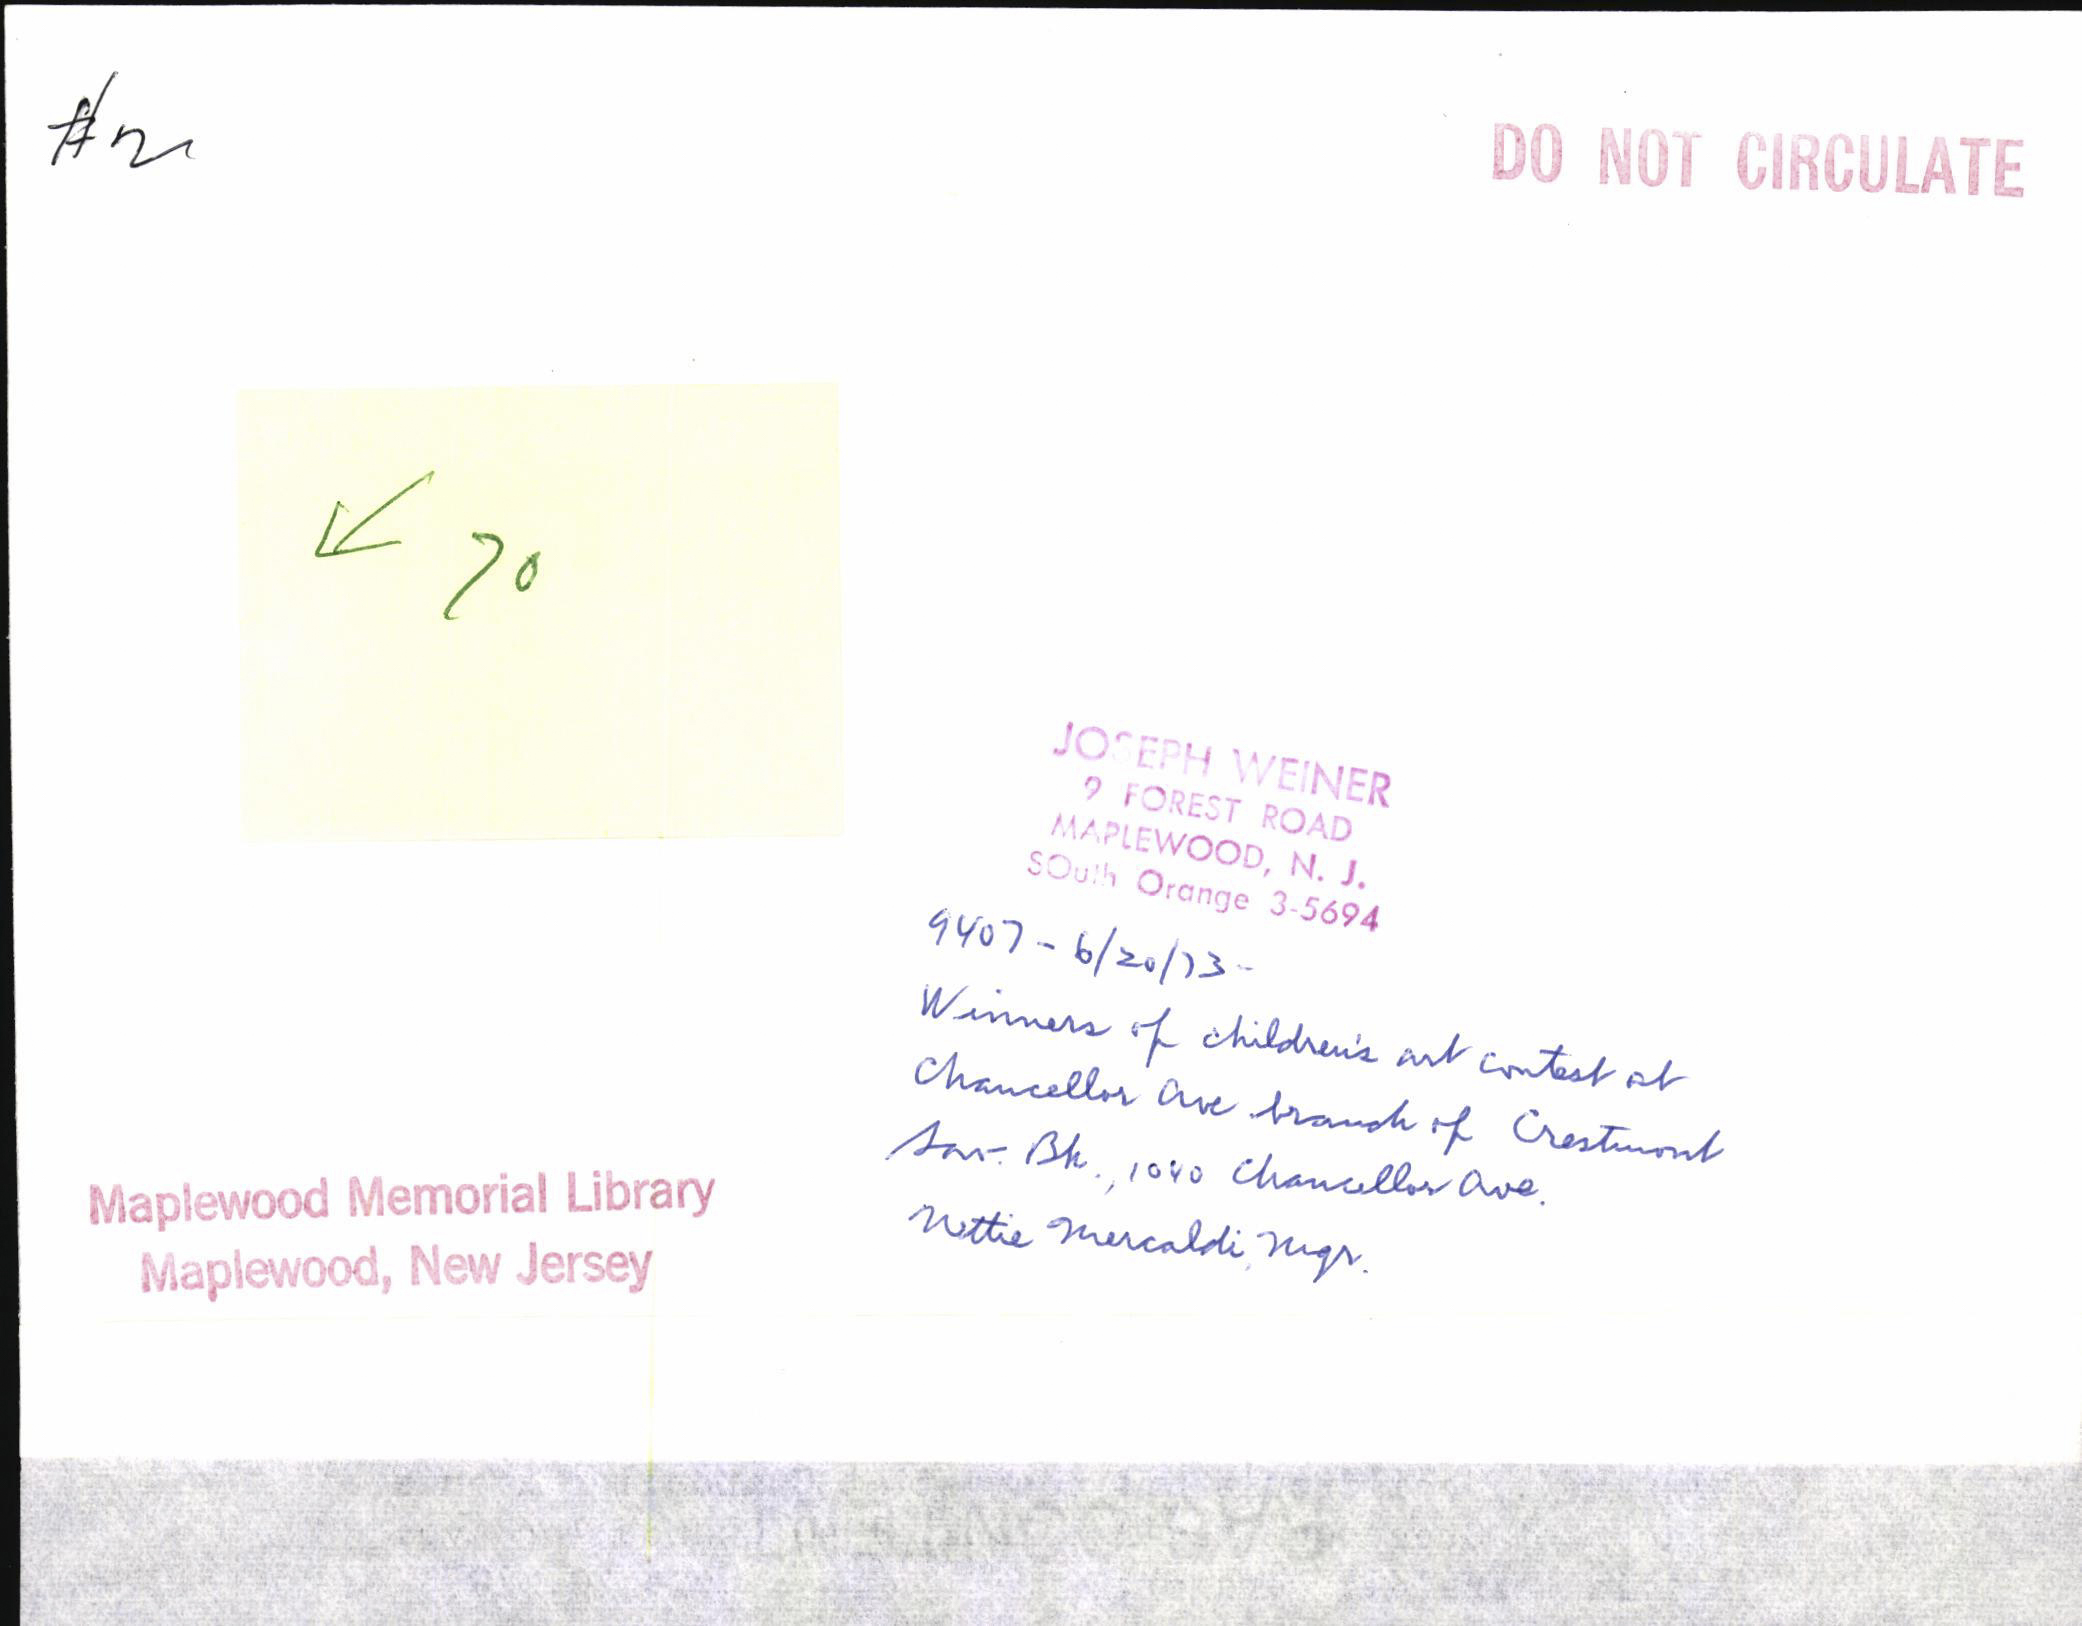 #2
DO NOT CIRCULATE
70
JOSEPH WEINER
9 FOREST ROAD
MAPLEWOOD, N. J.
SOuth Orange 3-5694
9407 - 6/20/73 -
Winners of children's art contest at
Chancellor Ave branch of Crestmont
Sav. Bk., 1040 Chancellor Ave.
Nettie Mercaldi, Mgr.
Maplewood Memorial Library
Maplewood, New Jersey